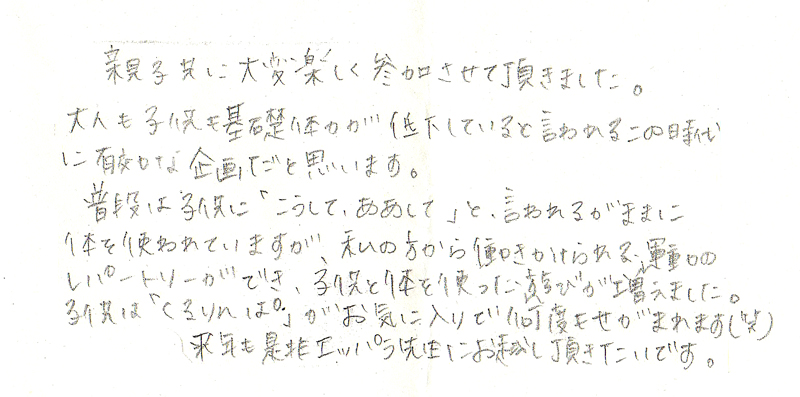 親子共に大変楽しく参加させて頂きました。
大人も子供も基礎体力が低下していると言われるこの時代
に有効な企画だと思います。
普段は子供に「こうして、ああして」と、言われるがままに
体を使われていますが、私の方から働きかけられる、運動の
レパートリーができ、子供と体を使った遊びが増えました。
子供は「くるりんぱ。」がお気に入りで何度もせがまれます(笑)
来年も是非エッパラ先生にお越し頂きたいです。